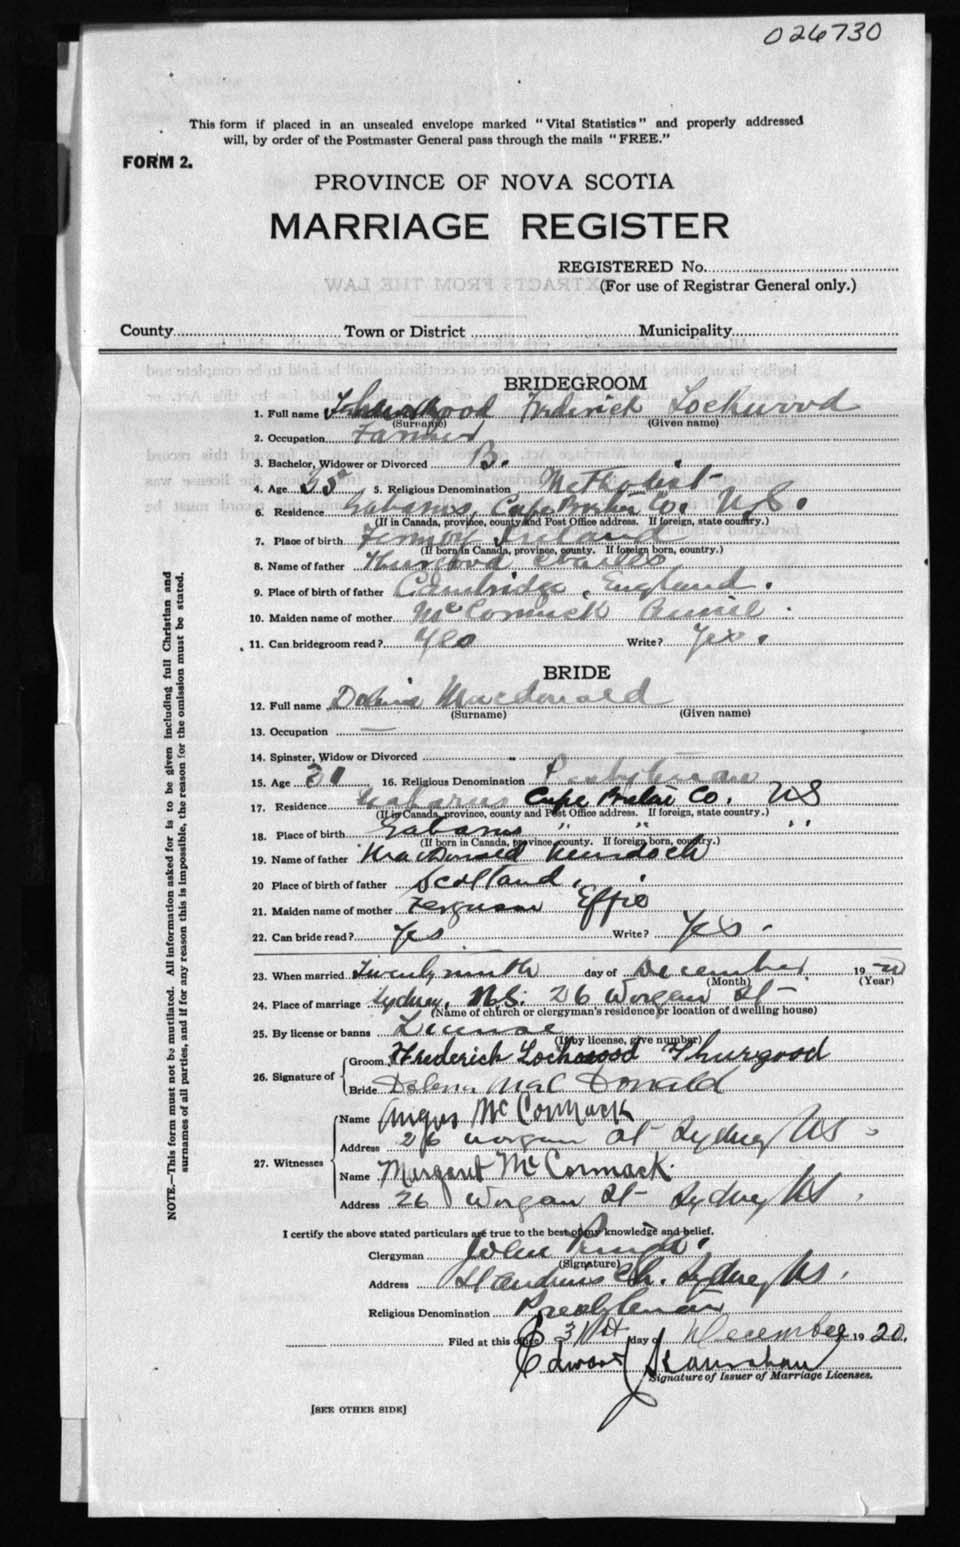 026730
This form if placed in an unsealed envelope marked "Vital Statistics" and properly addressed
will, by order of the Postmaster General pass through the mails "FREE."
FORM 2.
PROVINCE OF NOVA SCOTIA
MARRIAGE REGISTER
REGISTERED No.
(For use of Registrar General only.)
County Town or District Municipality
BRIDEGROOM
1. Full name Frederick Lockwood
(Surname) (Given name)
2. Occupation Farmer
3. Bachelor, Widower or Divorced B.
4. Age 5. Religious Denomination Methodist
6. Residence Gabarus, Cape Breton Co. N.S.
(If in Canada, province, county and Post Office address. If foreign, state country.)
7. Place of birth Fermoy Ireland
(If born in Canada, province, county. If foreign born, country.)
8. Name of father Thurgood Charles
9. Place of birth of father Cambridge, England.
10. Maiden name of mother McCormick Annie
11. Can bridegroom read? Yes Write? Yes.
BRIDE
12. Full name Macdonald
(Surname) (Given name)
13. Occupation —
14. Spinster, Widow or Divorced
15. Age 31 16. Religious Denomination Presbyterian
17. Residence Gabarus Cape Breton Co. NS
(If in Canada, province, county and Post Office address. If foreign, state country.)
18. Place of birth Gabarus " " "
(If born in Canada, province, county. If foreign born, country.)
19. Name of father MacDonald Murdoch
20 Place of birth of father Scotland.
21. Maiden name of mother Ferguson Effie
22. Can bride read? Yes Write? Yes.
23. When married Twenty ninth day of December 1920
(Month) (Year)
24. Place of marriage Sydney, N.S. 26 Worgan St
(Name of church or clergyman's residence or location of dwelling house)
25. By license or banns License
(If by license, give number)
26. Signature of Groom Frederick Lockwood Thurgood
Bride Delena MacDonald
27. Witnesses Name Angus McCormack
Address 26 Worgan St Sydney NS
Name Margaret McCormack.
Address 26 Worgan St Sydney NS.
I certify the above stated particulars are true to the best of my knowledge and belief.
Clergyman John Pringle.
(Signature)
Address St Andrews Ch. Sydney NS.
Religious Denomination Presbyterian
Filed at this office 31st day of December 1920.
Edward
Signature of Issuer of Marriage Licenses.
[SEE OTHER SIDE]
NOTE.—This form must not be mutilated. All information asked for is to be given including full Christian and
surnames of all parties, and if for any reason this is impossible, the reason for the omission must be stated.